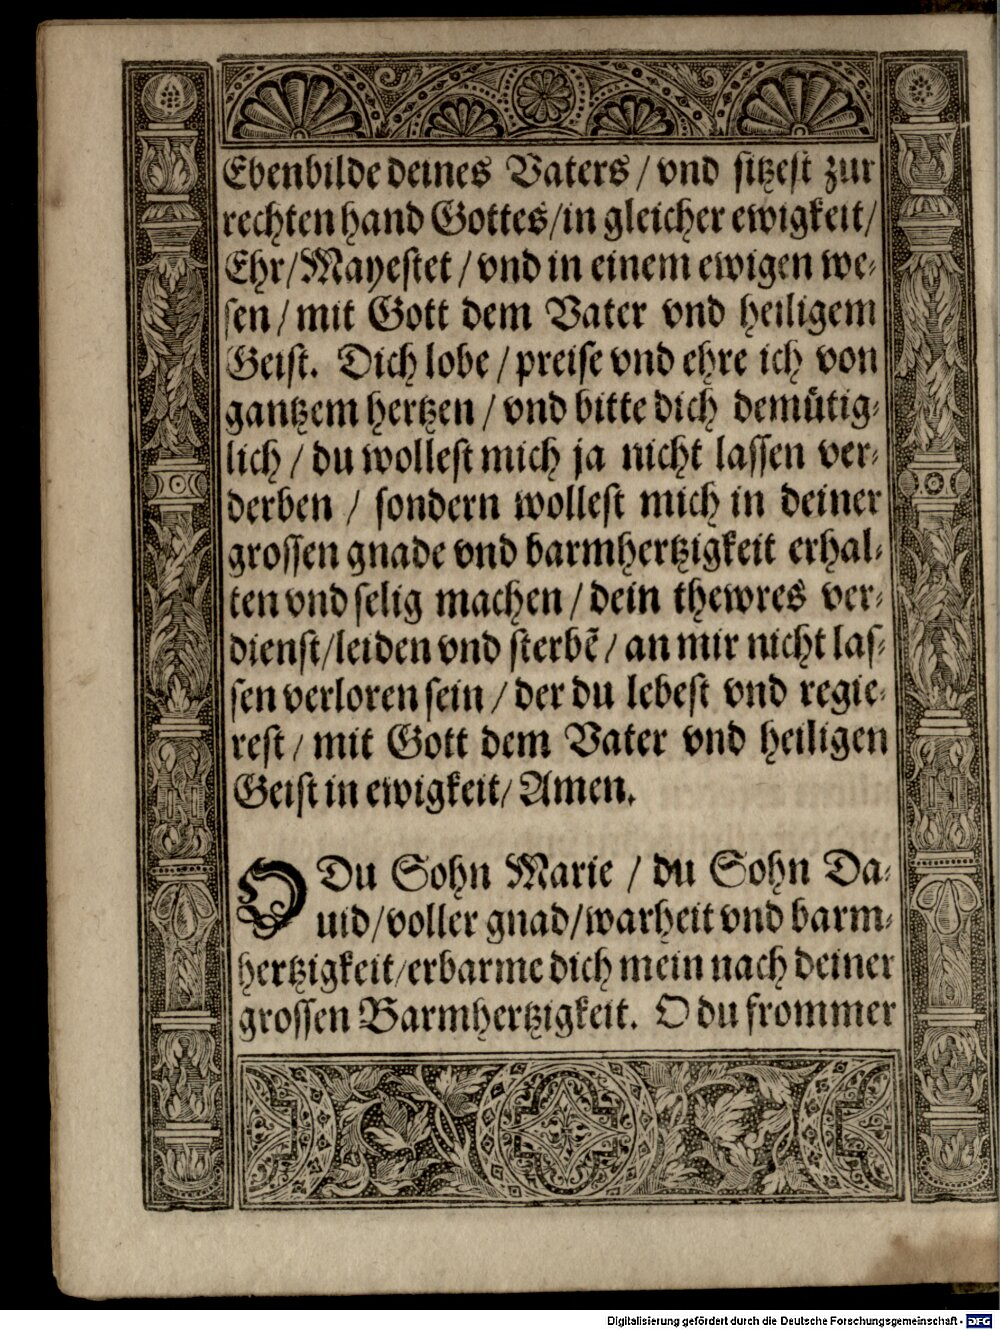 Ebenbilde deines Vaters / vnd sitzest zur
rechten hand Gottes/in gleicher ewigkeit/
Ehr/Mayestet / vnd in einem ewigen we-
sen / mit Gott dem Vater vnd heiligem
Geist. Dich lobe / preise vnd ehre ich von
gantzem hertzen / vnd bitte dich demuͤtig-
lich / du wollest mich ja nicht lassen ver-
derben / sondern wollest mich in deiner
grossen gnade vnd barmhertzigkeit erhal-
ten vnd selig machen / dein thewres ver-
dienst/leiden vnd sterbẽ / an mir nicht las-
sen verloren sein / der du lebest vnd regie-
rest / mit Gott dem Vater vnd heiligen
Geist in ewigkeit/ Amen.
O Du Sohn Marie / du Sohn Da-
uid/voller gnad/warheit vnd barm-
hertzigkeit/erbarme dich mein nach deiner
grossen Barmhertzigkeit. O du frommer
Digitalisierung gefördert durch die Deutsche Forschungsgemeinschaft - DFG